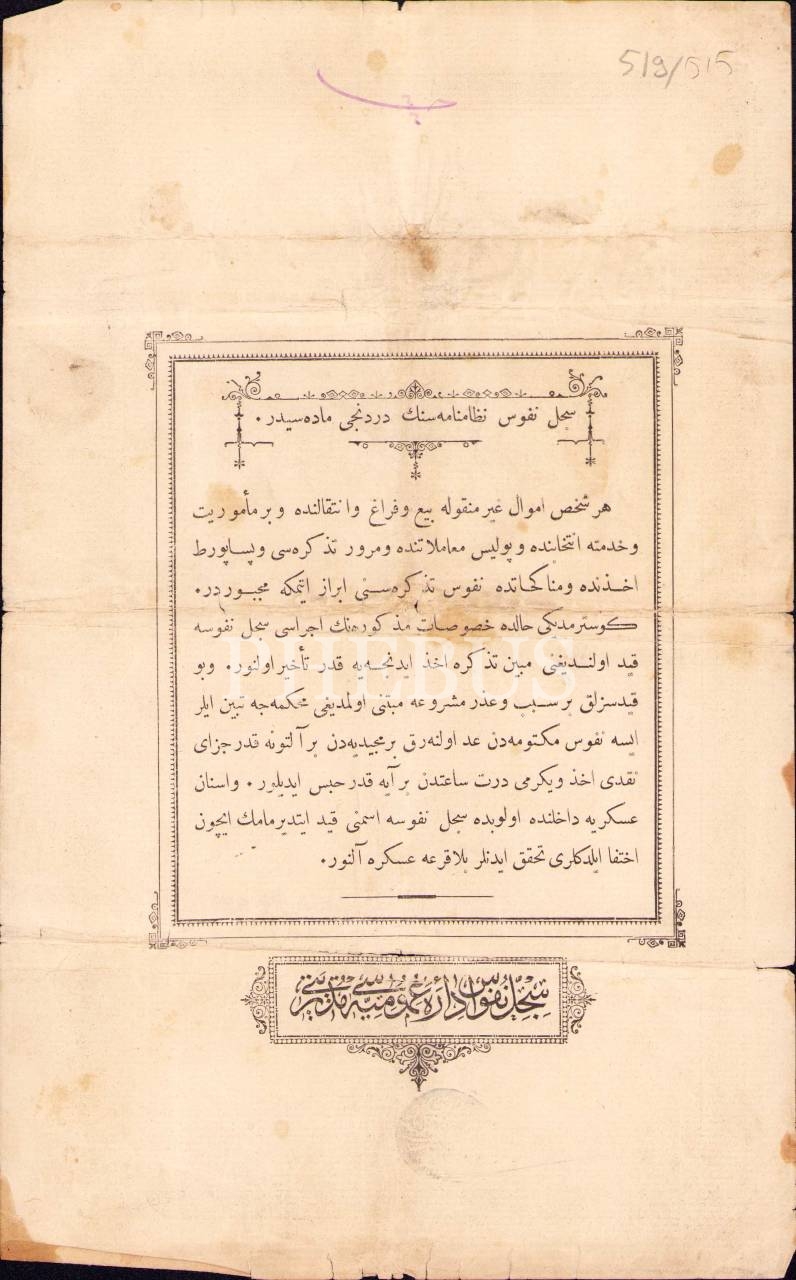 519/515
سجل نفوس نظامنامه‌سنك دردنجی ماده‌سیدر .
هر شخص اموال غیر منقوله بیع و فراغ و انتقالنده و بر مأموریت
و خدمته انتخابنده و پولیس معاملاتنده و مرور تذکره‌سی و پساپورط
اخذنده و مناکحاتده نفوس تذکره‌سنی ابراز ایتمکه مجبوردر .
کوسترمدیکی حالده خصوصات مذکوره‌نك اجراسی سجل نفوسه
قید اولندیغنی مبین تذکره اخذ ایدنجه‌یه قدر تأخیر اولنور . و بو
قیدسزلق بر سبب و عذر مشروعه مبتنی اولمدیغی محکمه‌جه تبین ایلر
ایسه نفوس مکتومه‌دن عد اولنه‌رق بر مجیدیه‌دن بر آلتونه قدر جزای
نقدی اخذ و یکرمی درت ساعتدن بر آیه قدر حبس ایدیلور . و اسنان
عسکریه داخلنده اولوبده سجل نفوسه اسمنی قید ایتدیرمامك ایچون
اختفا ایلدکلری تحقق ایدنلر بلا قرعه عسکره آلنور .
سجل نفوس اداره عمومیه سی مدیریتی
PHEBUS